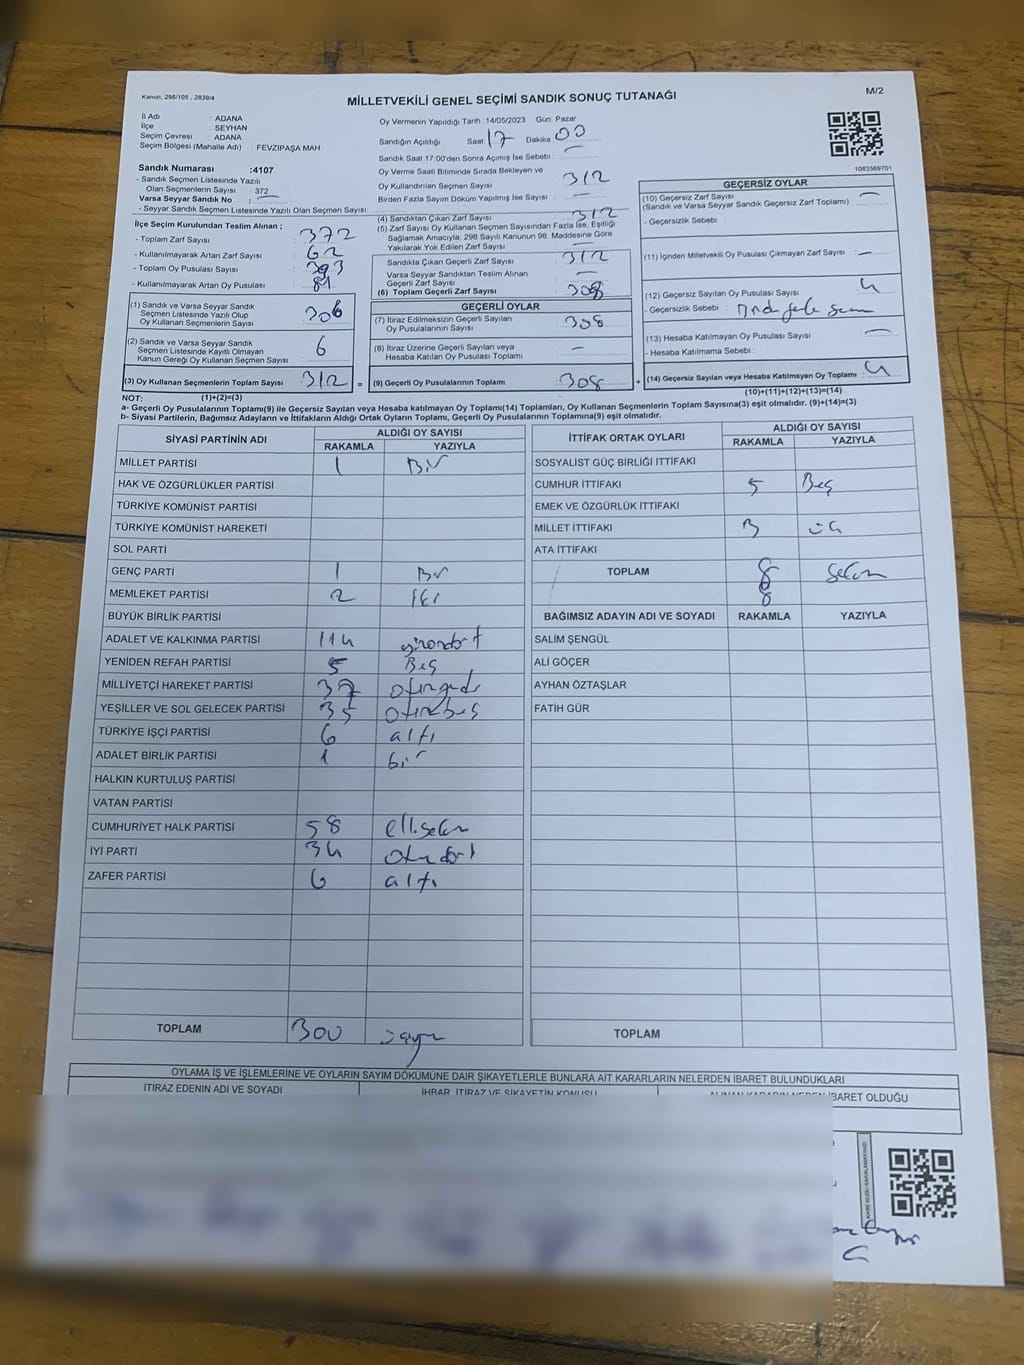 Kanun, 298/105 , 2839/4
MİLLETVEKİLİ GENEL SEÇİMİ SANDIK SONUÇ TUTANAĞI
M/2
İl Adı : ADANA
İlçe : SEYHAN
Seçim Çevresi : ADANA
Seçim Bölgesi (Mahalle Adı) : FEVZİPAŞA MAH
Sandık Numarası :4107
- Sandık Seçmen Listesinde Yazılı
Olan Seçmenlerin Sayısı : 372
Varsa Seyyar Sandık No : —
- Seyyar Sandık Seçmen Listesinde Yazılı Olan Seçmen Sayısı:
Oy Vermenin Yapıldığı Tarih 14/05/2023 Gün Pazar
Sandığın Açıldığı Saat 17 Dakika 00
Sandık Saat 17 00'den Sonra Açımış İse Sebebi : —
Oy Verme Saati Bitiminde Sırada Bekleyen ve
Oy Kullandırılan Seçmen Sayısı : 312
Birden Fazla Sayım Döküm Yapılmış İse Sayısı : —
1083569701
İlçe Seçim Kurulundan Teslim Alınan ;
- Toplam Zarf Sayısı : 372
- Kullanılmayarak Artan Zarf Sayısı : 62
- Toplam Oy Pusulası Sayısı : 393
- Kullanılmayarak Artan Oy Pusulası : 81
(1) Sandık ve Varsa Seyyar Sandık
Seçmen Listesinde Yazılı Olup
Oy Kullanan Seçmenlerin Sayısı : 306
(2) Sandık ve Varsa Seyyar Sandık
Seçmen Listesinde Kayıtlı Olmayan
Kanun Gereği Oy Kullanan Seçmen Sayısı : 6
(3) Oy Kullanan Seçmenlerin Toplam Sayısı : 312 =
(1)+(2)=(3)
(4) Sandıktan Çıkan Zarf Sayısı : 312
(5) Zarf Sayısı Oy Kullanan Seçmen Sayısından Fazla İse, Eşitliği
Sağlamak Amacıyla; 298 Sayılı Kanunun 98. Maddesine Göre
Yakılarak Yok Edilen Zarf Sayısı : —
Sandıkta Çıkan Geçerli Zarf Sayısı : 312
Varsa Seyyar Sandıktan Teslim Alınan
Geçerli Zarf Sayısı : —
(6) Toplam Geçerli Zarf Sayısı : 308
GEÇERLİ OYLAR
(7) İtiraz Edilmeksizin Geçerli Sayılan
Oy Pusulalarının Sayısı : 308
(8) İtiraz Üzerine Geçerli Sayılan veya
Hesaba Katılan Oy Pusulası Toplamı : —
(9) Geçerli Oy Pusulalarının Toplamı : 308 +
GEÇERSİZ OYLAR
(10) Geçersiz Zarf Sayısı : —
(Sandık ve Varsa Seyyar Sandık Geçersiz Zarf Toplamı)
- Geçersizlik Sebebi :
(11) İçinden Milletvekili Oy Pusulası Çıkmayan Zarf Sayısı : —
(12) Geçersiz Sayılan Oy Pusulası Sayısı : 4
- Geçersizlik Sebebi :
(13) Hesaba Katılmayan Oy Pusulası Sayısı : —
- Hesaba Katılmama Sebebi :
(14) Geçersiz Sayılan veya Hesaba Katılmayan Oy Toplamı : 4
(10)+(11)+(12)+(13)=(14)
NOT:
a- Geçerli Oy Pusulalarının Toplamı(9) ile Geçersiz Sayılan veya Hesaba katılmayan Oy Toplamı(14) Toplamları, Oy Kullanan Seçmenlerin Toplam Sayısına(3) eşit olmalıdır. (9)+(14)=(3)
b- Siyasi Partilerin, Bağımsız Adayların ve İttifakların Aldığı Ortak Oyların Toplamı, Geçerli Oy Pusulalarının Toplamına(9) eşit olmalıdır.
SİYASİ PARTİNİN ADI ALDIĞI OY SAYISI
RAKAMLA YAZIYLA
MİLLET PARTİSİ 1 Bir
HAK VE ÖZGÜRLÜKLER PARTİSİ
TÜRKİYE KOMÜNİST PARTİSİ
TÜRKİYE KOMÜNİST HAREKETİ
SOL PARTİ
GENÇ PARTİ 1 Bir
MEMLEKET PARTİSİ 2 İki
BÜYÜK BİRLİK PARTİSİ
ADALET VE KALKINMA PARTİSİ 114 yüzondört
YENİDEN REFAH PARTİSİ 5 Beş
MİLLİYETÇİ HAREKET PARTİSİ 37 otuzyedi
YEŞİLLER VE SOL GELECEK PARTİSİ 35 otuzbeş
TÜRKİYE İŞÇİ PARTİSİ 6 altı
ADALET BİRLİK PARTİSİ 1 bir
HALKIN KURTULUŞ PARTİSİ
VATAN PARTİSİ
CUMHURİYET HALK PARTİSİ 58 ellisekiz
İYİ PARTİ 34 otuzdört
ZAFER PARTİSİ 6 altı
TOPLAM 300 üçyüz
İTTİFAK ORTAK OYLARI ALDIĞI OY SAYISI
RAKAMLA YAZIYLA
SOSYALİST GÜÇ BİRLİĞİ İTTİFAKI
CUMHUR İTTİFAKI 5 Beş
EMEK VE ÖZGÜRLÜK İTTİFAKI
MİLLET İTTİFAKI 3 üç
ATA İTTİFAKI
TOPLAM 8 sekiz
8
BAĞIMSIZ ADAYIN ADI VE SOYADI RAKAMLA YAZIYLA
SALİM ŞENGÜL
ALİ GÖÇER
AYHAN ÖZTAŞLAR
FATİH GÜR
TOPLAM
OYLAMA İŞ VE İŞLEMLERİNE VE OYLARIN SAYIM DÖKÜMÜNE DAİR ŞİKAYETLERLE BUNLARA AİT KARARLARIN NELERDEN İBARET BULUNDUKLARI
İTİRAZ EDENİN ADI VE SOYADI İHBAR, İTİRAZ VE ŞİKAYETİN KONUSU ALINAN KARARIN NEDEN İBARET OLDUĞU